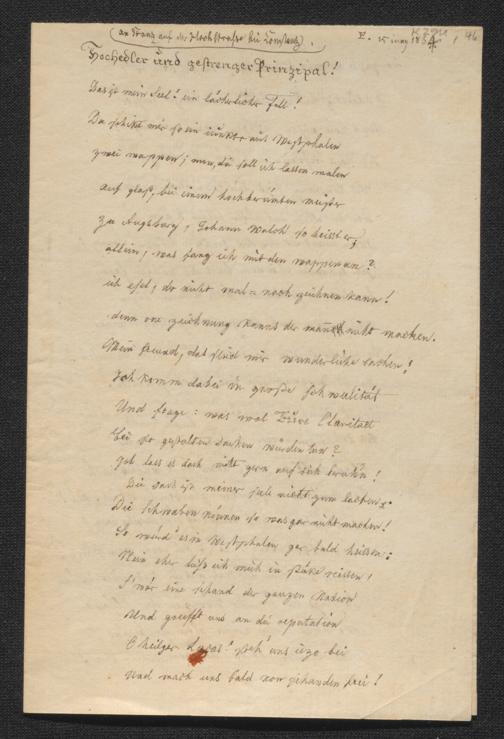 an Franz auf der Hochstraße bei Constanz.
E. 15 may 1834
Hochedler und gestrenger Prinzipal!
Das ist mein Seel! ein lächerlicher Fall!
Da schikt mir so ein iunker aus Westphalen
zwei wappen; nun, da soll ich lassen malen
auf glas, bei einem hochberümten meister
zu Augsburg, Johann Walch so heisst er;
allein, was fang ich mit den wappen an?
ich esel, der nicht mal = noch zeichnen kann!
denn one zeichnung kanns der mann nicht machen.
Mein freund, das sind mir wunderliche sachen!
Ich komm dabei in große Schwulität
Und frage: was wol Eüre Claritaet
bei so gestalten Sachen würden tun?
Ich lass es doch nicht gern auf sich beruhn!
Die Sach ist meiner seel nicht zum lachen.
Die Schwaben können so was gar nicht machen!
So würd' es in Westphalen gar bald heissen:
Nein eher ließ ich mich in stüke reissen!
S'wär eine schand der ganzen Nation
Und greifft uns an die reputation
O heilger Lucas! steh' uns izo bei
und mach uns bald von schanden frei!